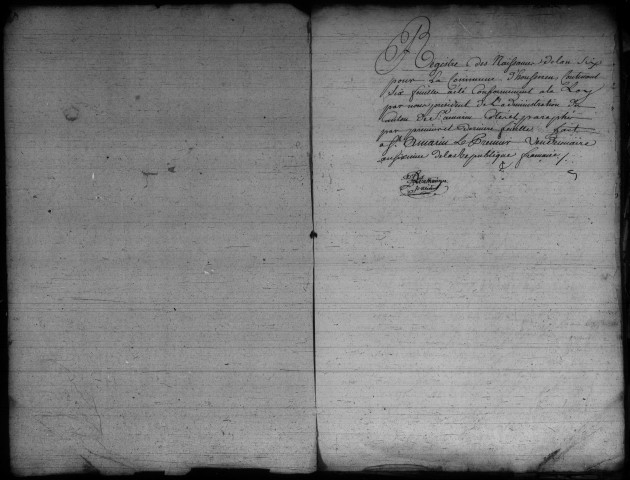 Registre des Naissances de lan Six
pour la Commune d'housseren, Contenant
Six feuilles a été Conformement a la Loy
par nous president de L'administration du
canton de St. amarin Coté et paraphé
par premiere et derniere feuille fait
a St. Amarin le Premier Vendemiaire
an sixieme de la Republique francaise